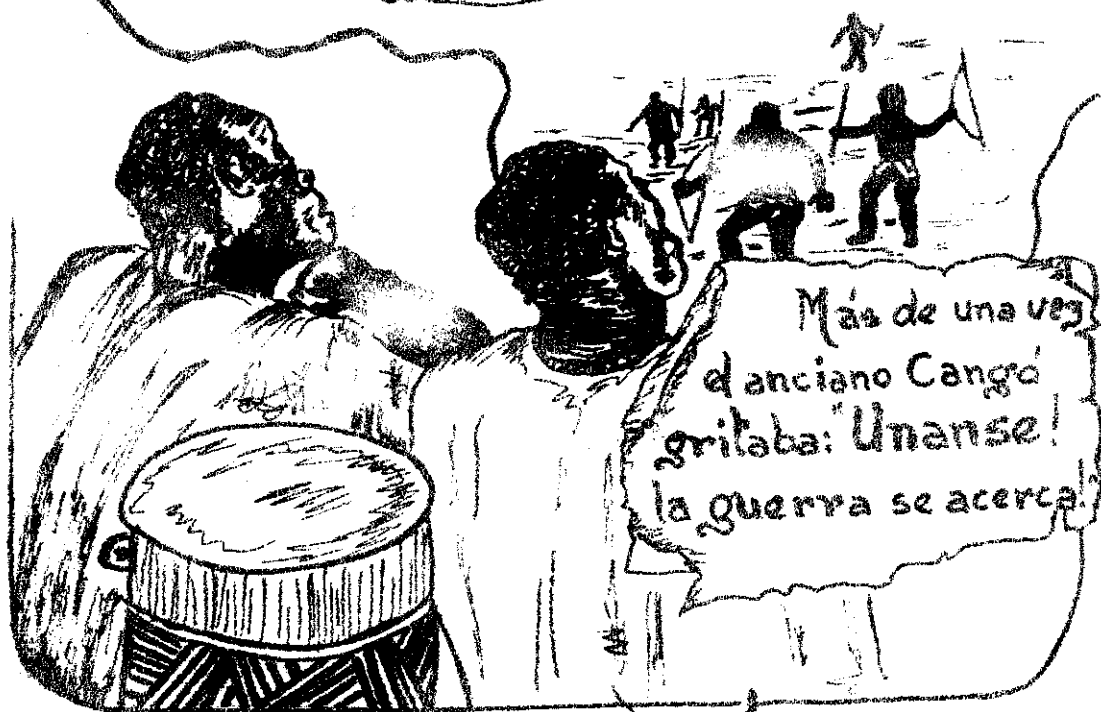 Más de una vez
el anciano Cangá
gritaba: "Unanse!
la guerra se acerca!"